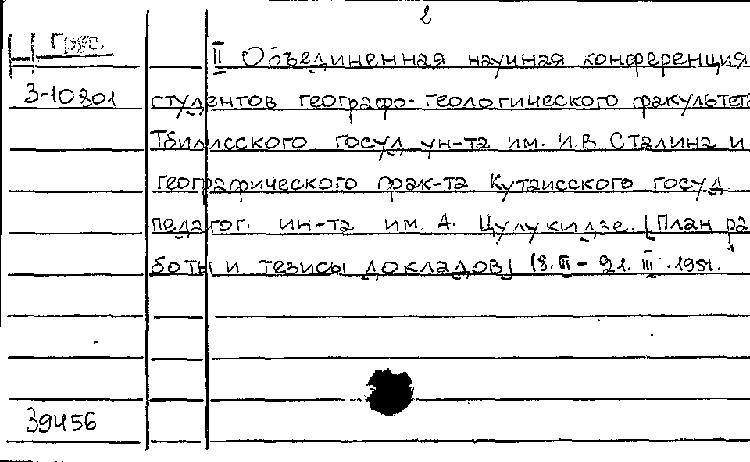 2
Груз.
II Объединенная научная конференция
3-10201
студентов географо-геологического факультета
Тбилисского госуд ун-та им. И.В. Сталина и
географического фак-та Кутаисского госуд.
педагог. ин-та им. А. Цулукидзе. [План ра
боты и тезисы докладов] 18. III - 21. III. 1951.
39456